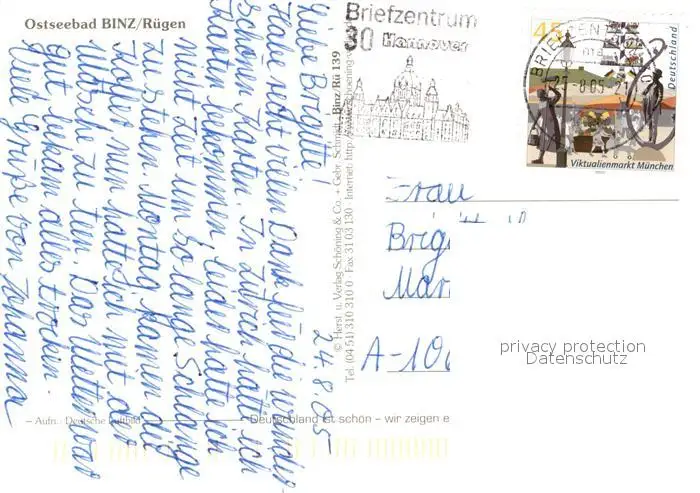 Ostseebad BINZ/Rügen
Liebe Brigitte!
Habe recht vielen Dank für die wunder-
schönen Karten. In Zürich hatte ich
Karten bekommen, leider hatte ich
nicht Zeit um so lange Schlange
zu stehen. Montag kamen die
Koffer nun hatte ich mit der
Wäsche zu tun. Das Wetter war
gut bekam alles trocken.
Viele Grüße von Johanna
24.8.05
– Aufn.: Deutsche Luftbild
Deutschland ist schön – wir zeigen e
© Herst. u. Verlag Schöning & Co. + Gebr. Schmidt, Binz/Rü 139
Tel. (04 51) 310 310 0 · Fax 31 03 130 · Internet: http://
Briefzentrum
30 Hannover
BRIEFZENTRUM
45
Deutschland
Viktualienmarkt München
Frau
Brig
Mar
A-10
privacy protection
Datenschutz